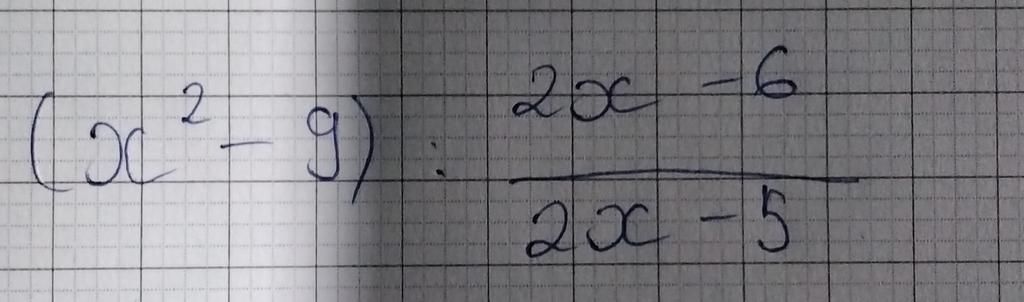 (x² - 9) : 2x - 6
2x - 5